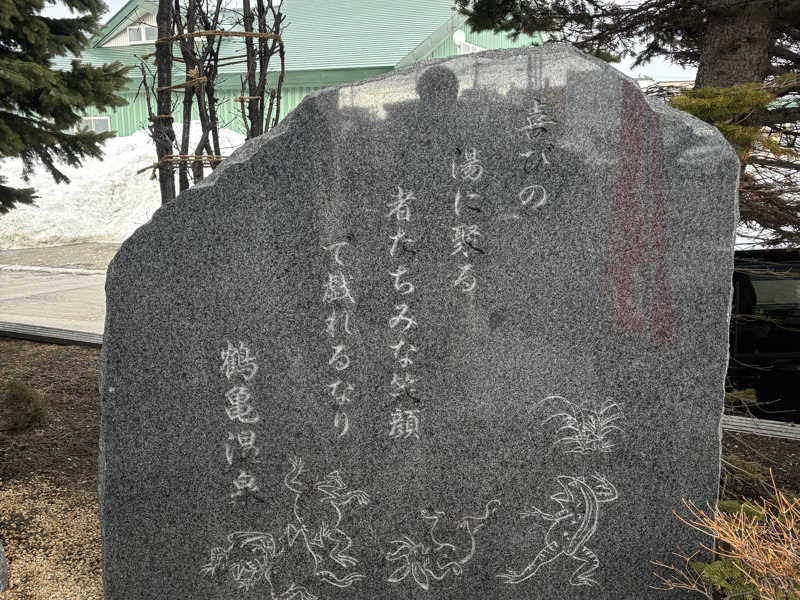 喜びの
湯に聚る
者たちみな笑顔
で戯れるなり
鶴亀温泉